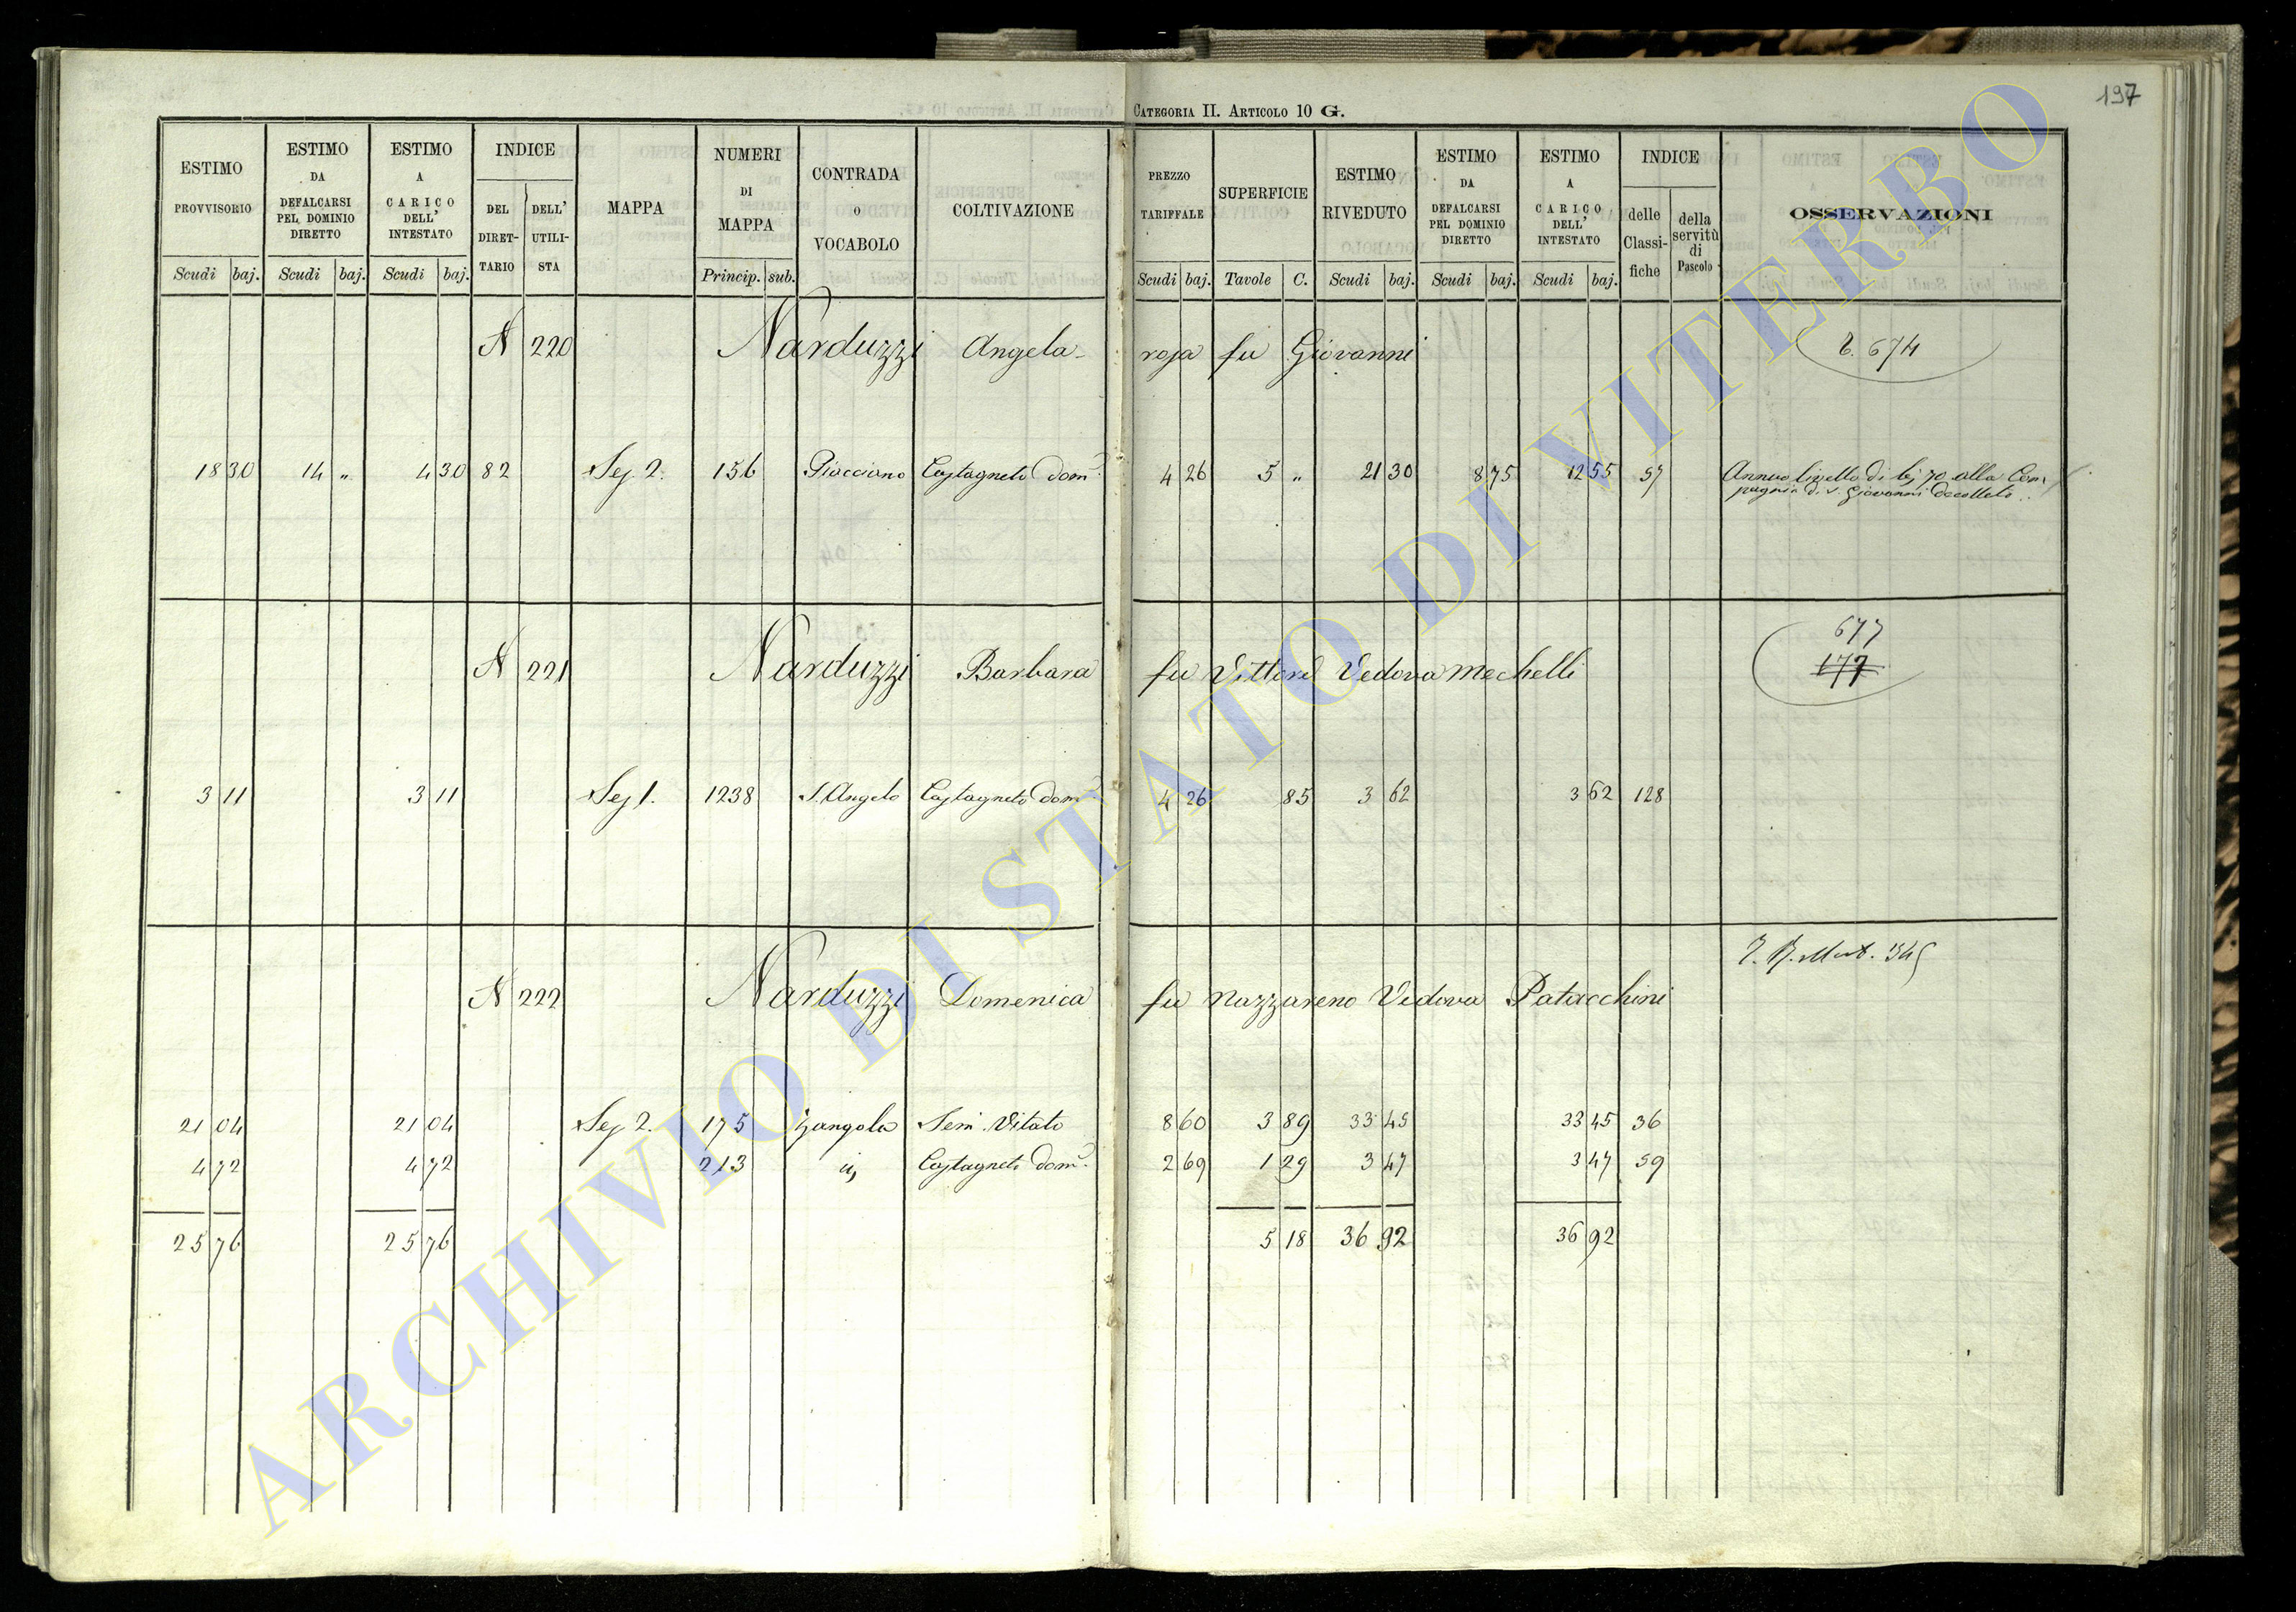 197
CATEGORIA II. ARTICOLO 10 G.
ESTIMO PROVVISORIO Scudi baj.
ESTIMO DA DEFALCARSI PEL DOMINIO DIRETTO Scudi baj.
ESTIMO A CARICO DELL' INTESTATO Scudi baj.
INDICE DEL DIRET-TARIO DELL' UTILI-STA
MAPPA
NUMERI DI MAPPA Princip. sub.
CONTRADA o VOCABOLO
COLTIVAZIONE
PREZZO TARIFFALE Scudi baj.
SUPERFICIE Tavole C.
ESTIMO RIVEDUTO Scudi baj.
ESTIMO DA DEFALCARSI PEL DOMINIO DIRETTO Scudi baj.
ESTIMO A CARICO DELL' INTESTATO Scudi baj.
INDICE delle Classi-fiche della servitù di Pascolo
OSSERVAZIONI
N 220 Narduzzi Angela- rosa fu Giovanni 674
18 30 14 „ 4 30 82 Sez 2. 156 Piacciano Castagneto dom. 4 26 5 „ 21 30 8 75 12 55 57 Annuo livello di bj 70 alla Com
pagnia di S. Giovanni decollato
677
N 221 Narduzzi Barbara fu Vittorio Vedova Mechelli 177
3 11 3 11 Sez 1. 1238 S. Angelo Castagneto dom. 4 26 85 3 62 3 62 128
N 222 Narduzzi Domenica fu Nazzareno Vedova Patacchini
21 04 21 04 Sez 2. 175 Zangola Sem. Vitato 8 60 3 89 33 45 33 45 36
4 72 4 72 213 Castagneto dom. 2 69 1 29 3 47 3 47 59
25 76 25 76 5 18 36 92 36 92
ARCHIVIO DI STATO DI VITERBO